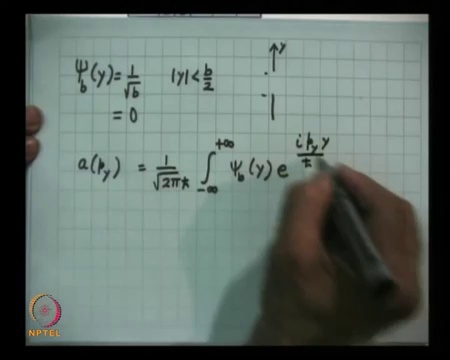 ψ_b(y) = 1/√b   |y| < b/2
= 0
y
a(p_y) = 1/√(2πħ) ∫_{-∞}^{+∞} ψ_b(y) e^{i p_y y/ħ}
NPTEL